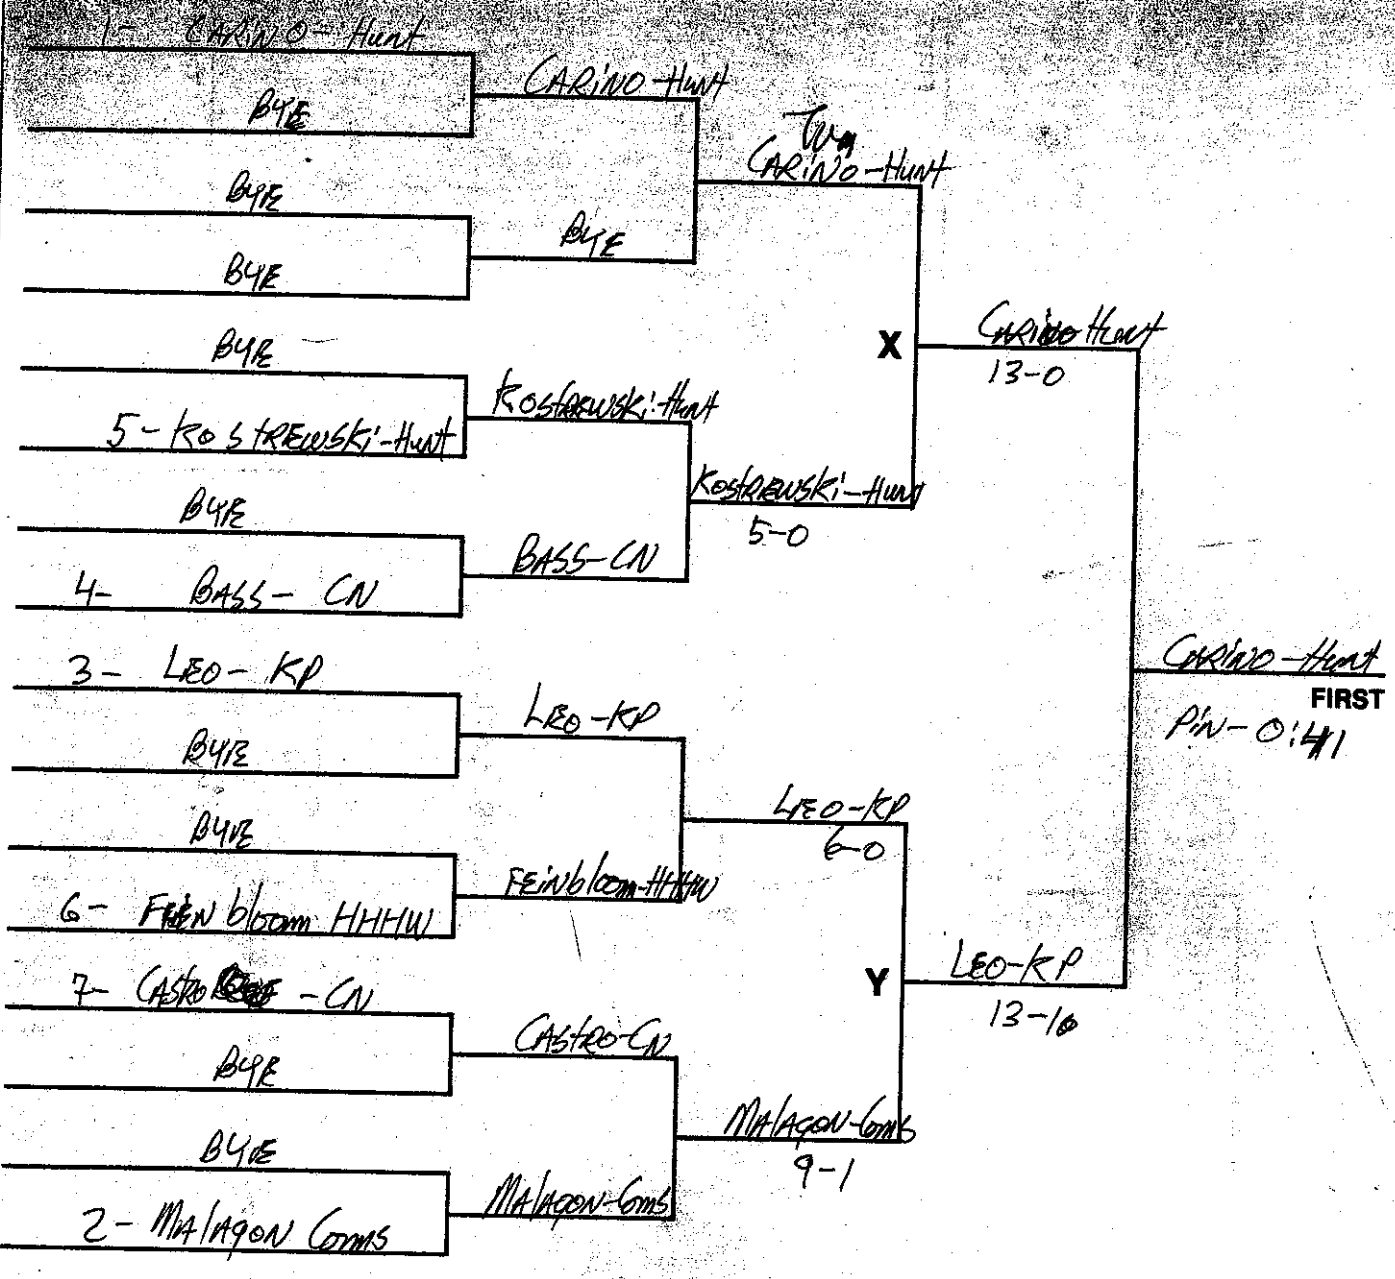 1- CARiNO-Hunt
BYE
BYE
BYE
BYE
5-KOStREWSKi-Hunt
BYE
4- BASS- CN
3- LEO- KP
BYE
BYE
6- FEiNbloom HHHW
7- CAStRO -CN
BYE
BYE
2- MAlAgON Comms
CARiNO-Hunt
BYE
KOStREWSKi-Hunt
BASS-CN
LEO-KP
FEiNbloom-HHHW
CAStRO-CN
MAlAgON-Comms
CARiNO-Hunt
KOStREWSKi-Hunt
5-0
LEO-KP
6-0
MAlAgON-Comms
9-1
X
Y
CARiNO Hunt
13-0
LEO-KP
13-10
CARiNO-Hunt
FIRST
PiN- 0:41